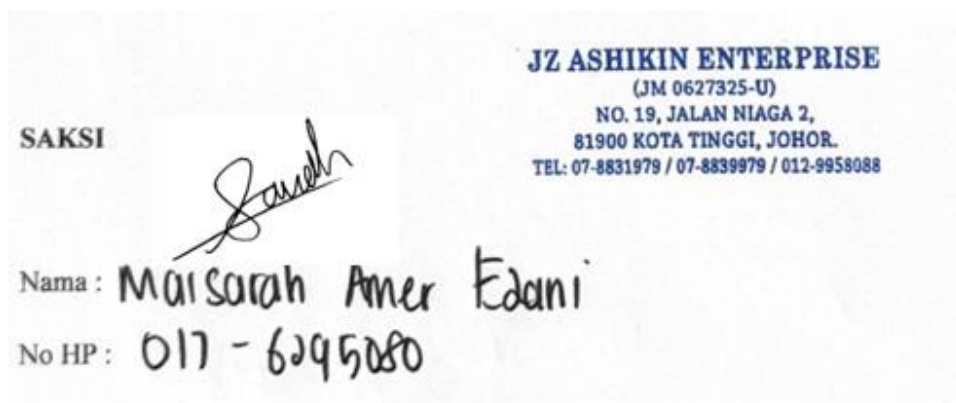 JZ ASHIKIN ENTERPRISE
(JM 0627325-U)
NO. 19, JALAN NIAGA 2,
81900 KOTA TINGGI, JOHOR.
TEL: 07-8831979 / 07-8839979 / 012-9958088
SAKSI
Nama : Maisarah Amer Edani
No HP : 017-6295080